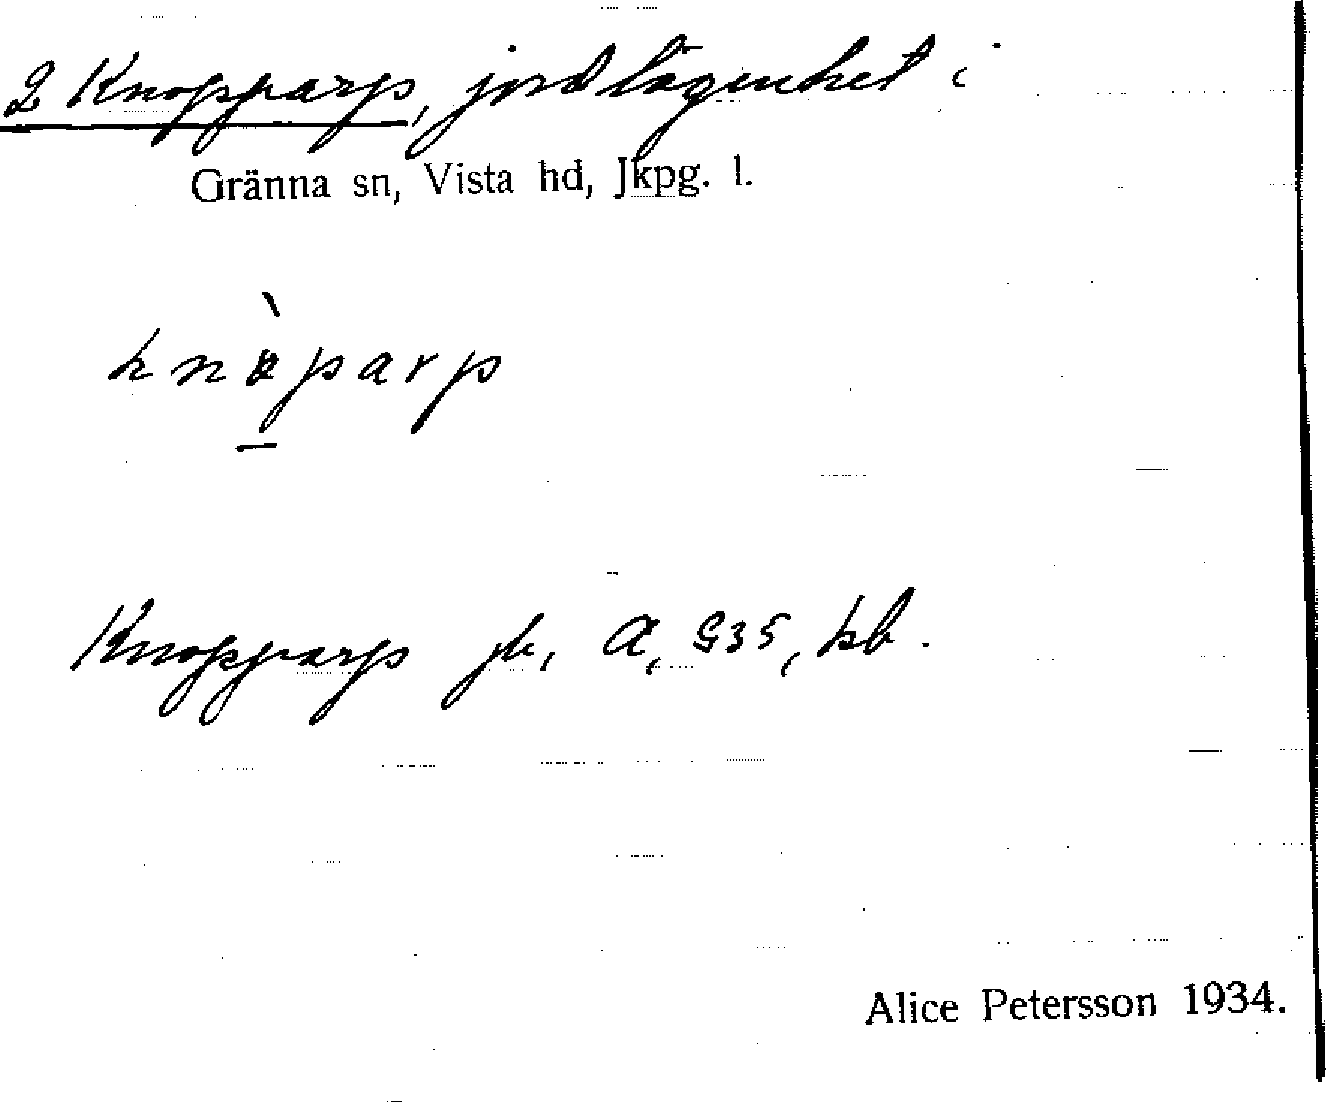 2 Knopparp, jordlägenhet i
Gränna sn, Vista hd, Jkpg. l.
Knopparp jb, A, G35, kb.
Alice Petersson 1934.